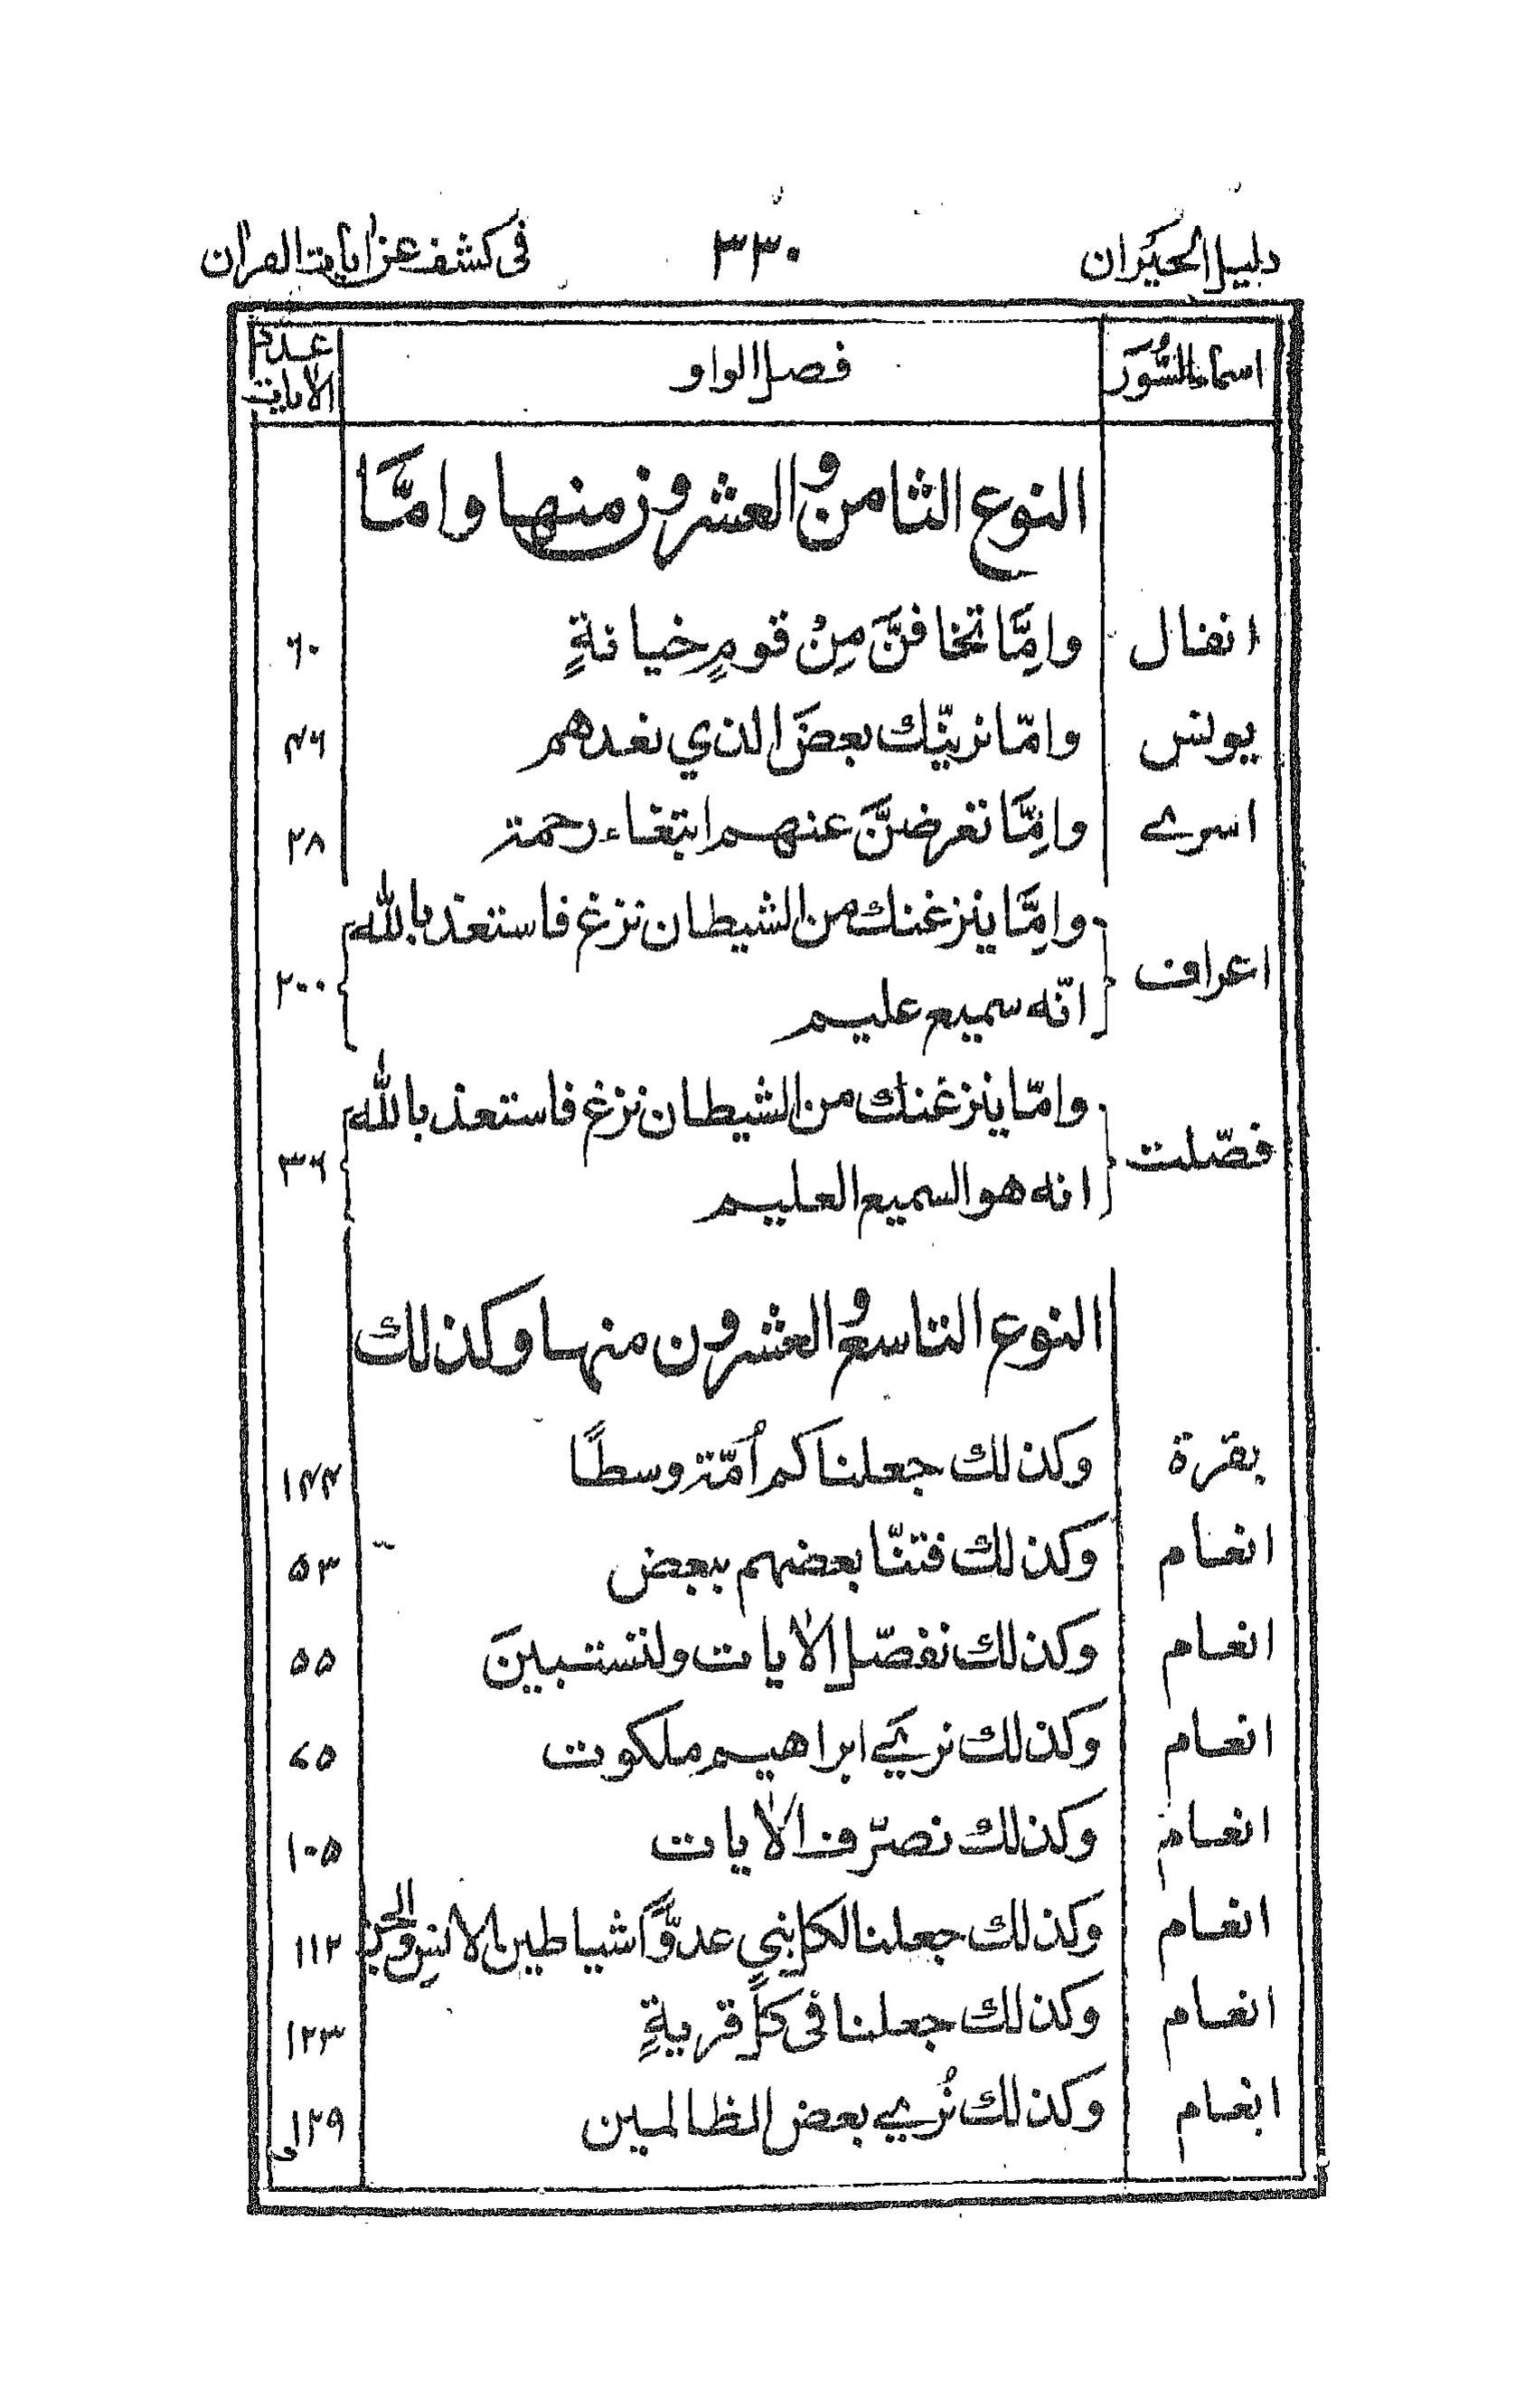 دليل الحيران ٣٣٠ في كشف عن ايات القران
اسماء السُّوَر فصل الواو عدد الآيات
النوع الثامن و العشرون منها وامَّا
انفال وامِّا تخافنَّ مِنْ قومٍ خيانةٍ ٦٠
يونس وامّا نرينّك بعضَ الذي نعدهم ٤٦
اسرے وامِّا تعرضنَّ عنهم ابتغاء رحمة ٢٨
اعراف وامِّا ينزغنك من الشيطان نزغ فاستعذ بالله ٢٠٠
انّه سميع عليم
فصّلت وامّا ينزغنك من الشيطان نزغ فاستعذ بالله ٣٦
انه هو السميع العليم
النوع التاسع و العشرون منها وكذلك
بقرة وكذلك جعلناكم اُمّة وسطًا ١٤٣
انعام وكذلك فتنّا بعضهم ببعض ٥٣
انعام وكذلك نفصّل الآيات ولتستبينَ ٥٥
انعام وكذلك نري ابراهيم ملكوت ٧٥
انعام وكذلك نصرّف الآيات ١٠٥
انعام وكذلك جعلنا لكل نبي عدوًّا شياطين الانسِ والجن ١١٢
انعام وكذلك جعلنا في كلّ قريةٍ ١٢٣
انعام وكذلك نُولّي بعض الظالمين ١٢٩